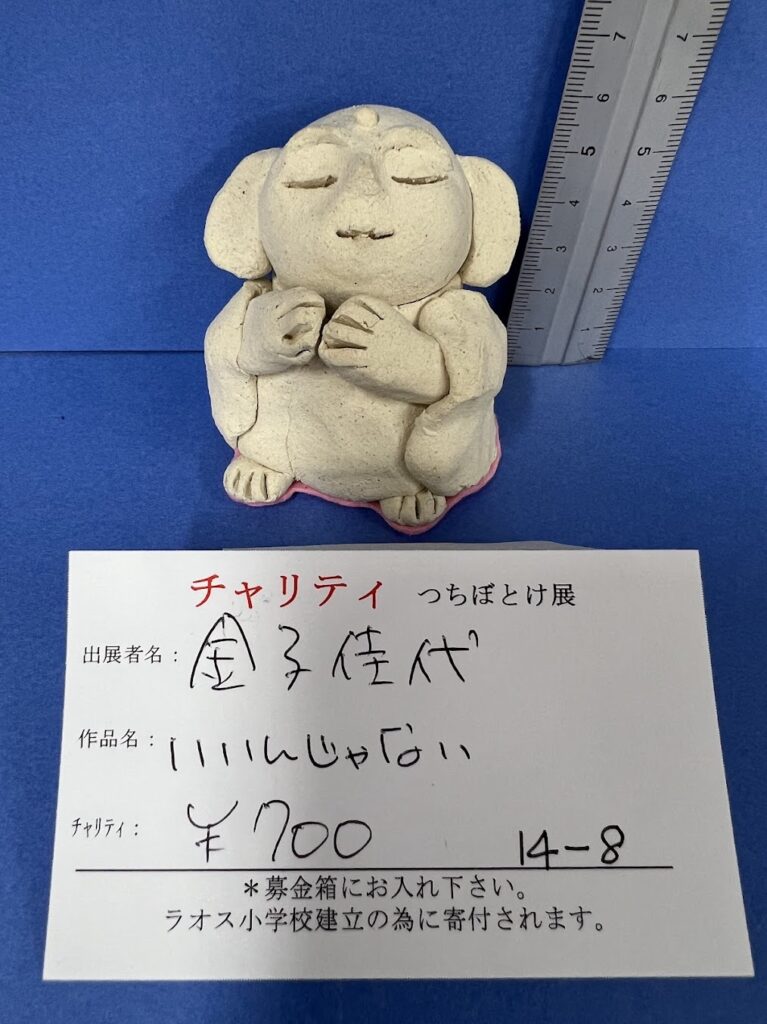 7 7
6 6
5 5
4
3 3
2 2
1 1
チャリティ つちぼとけ展
出展者名：金子佳代
作品名：いいんじゃない
ﾁｬﾘﾃｨ：¥700 14-8
＊募金箱にお入れ下さい。
ラオス小学校建立の為に寄付されます。